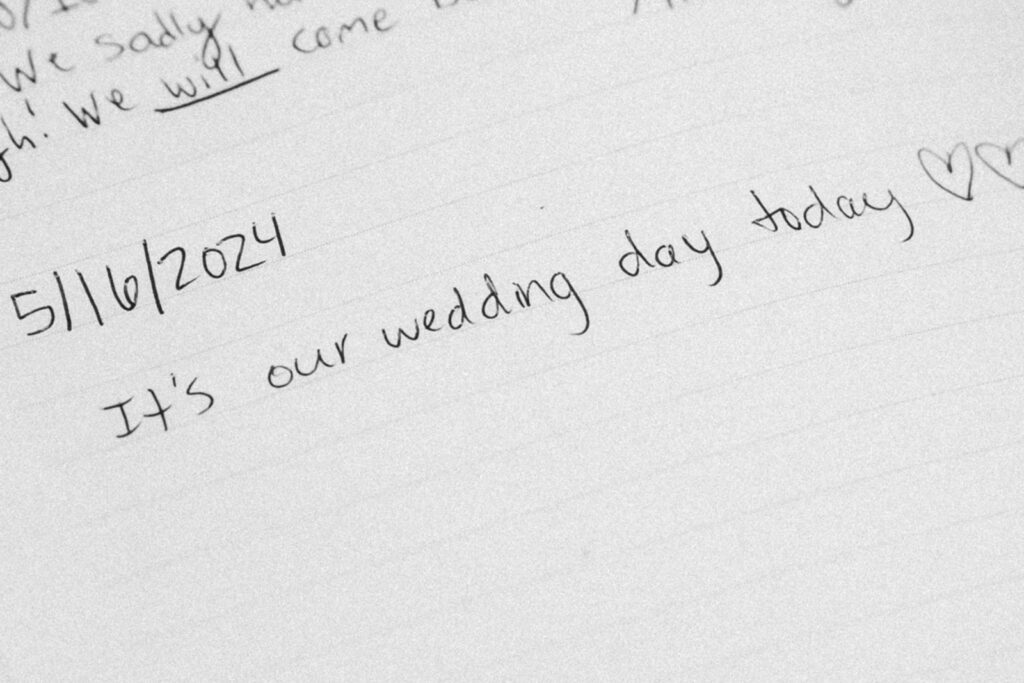 We sadly
We will come
5/16/2024
It's our wedding day today ♡♡